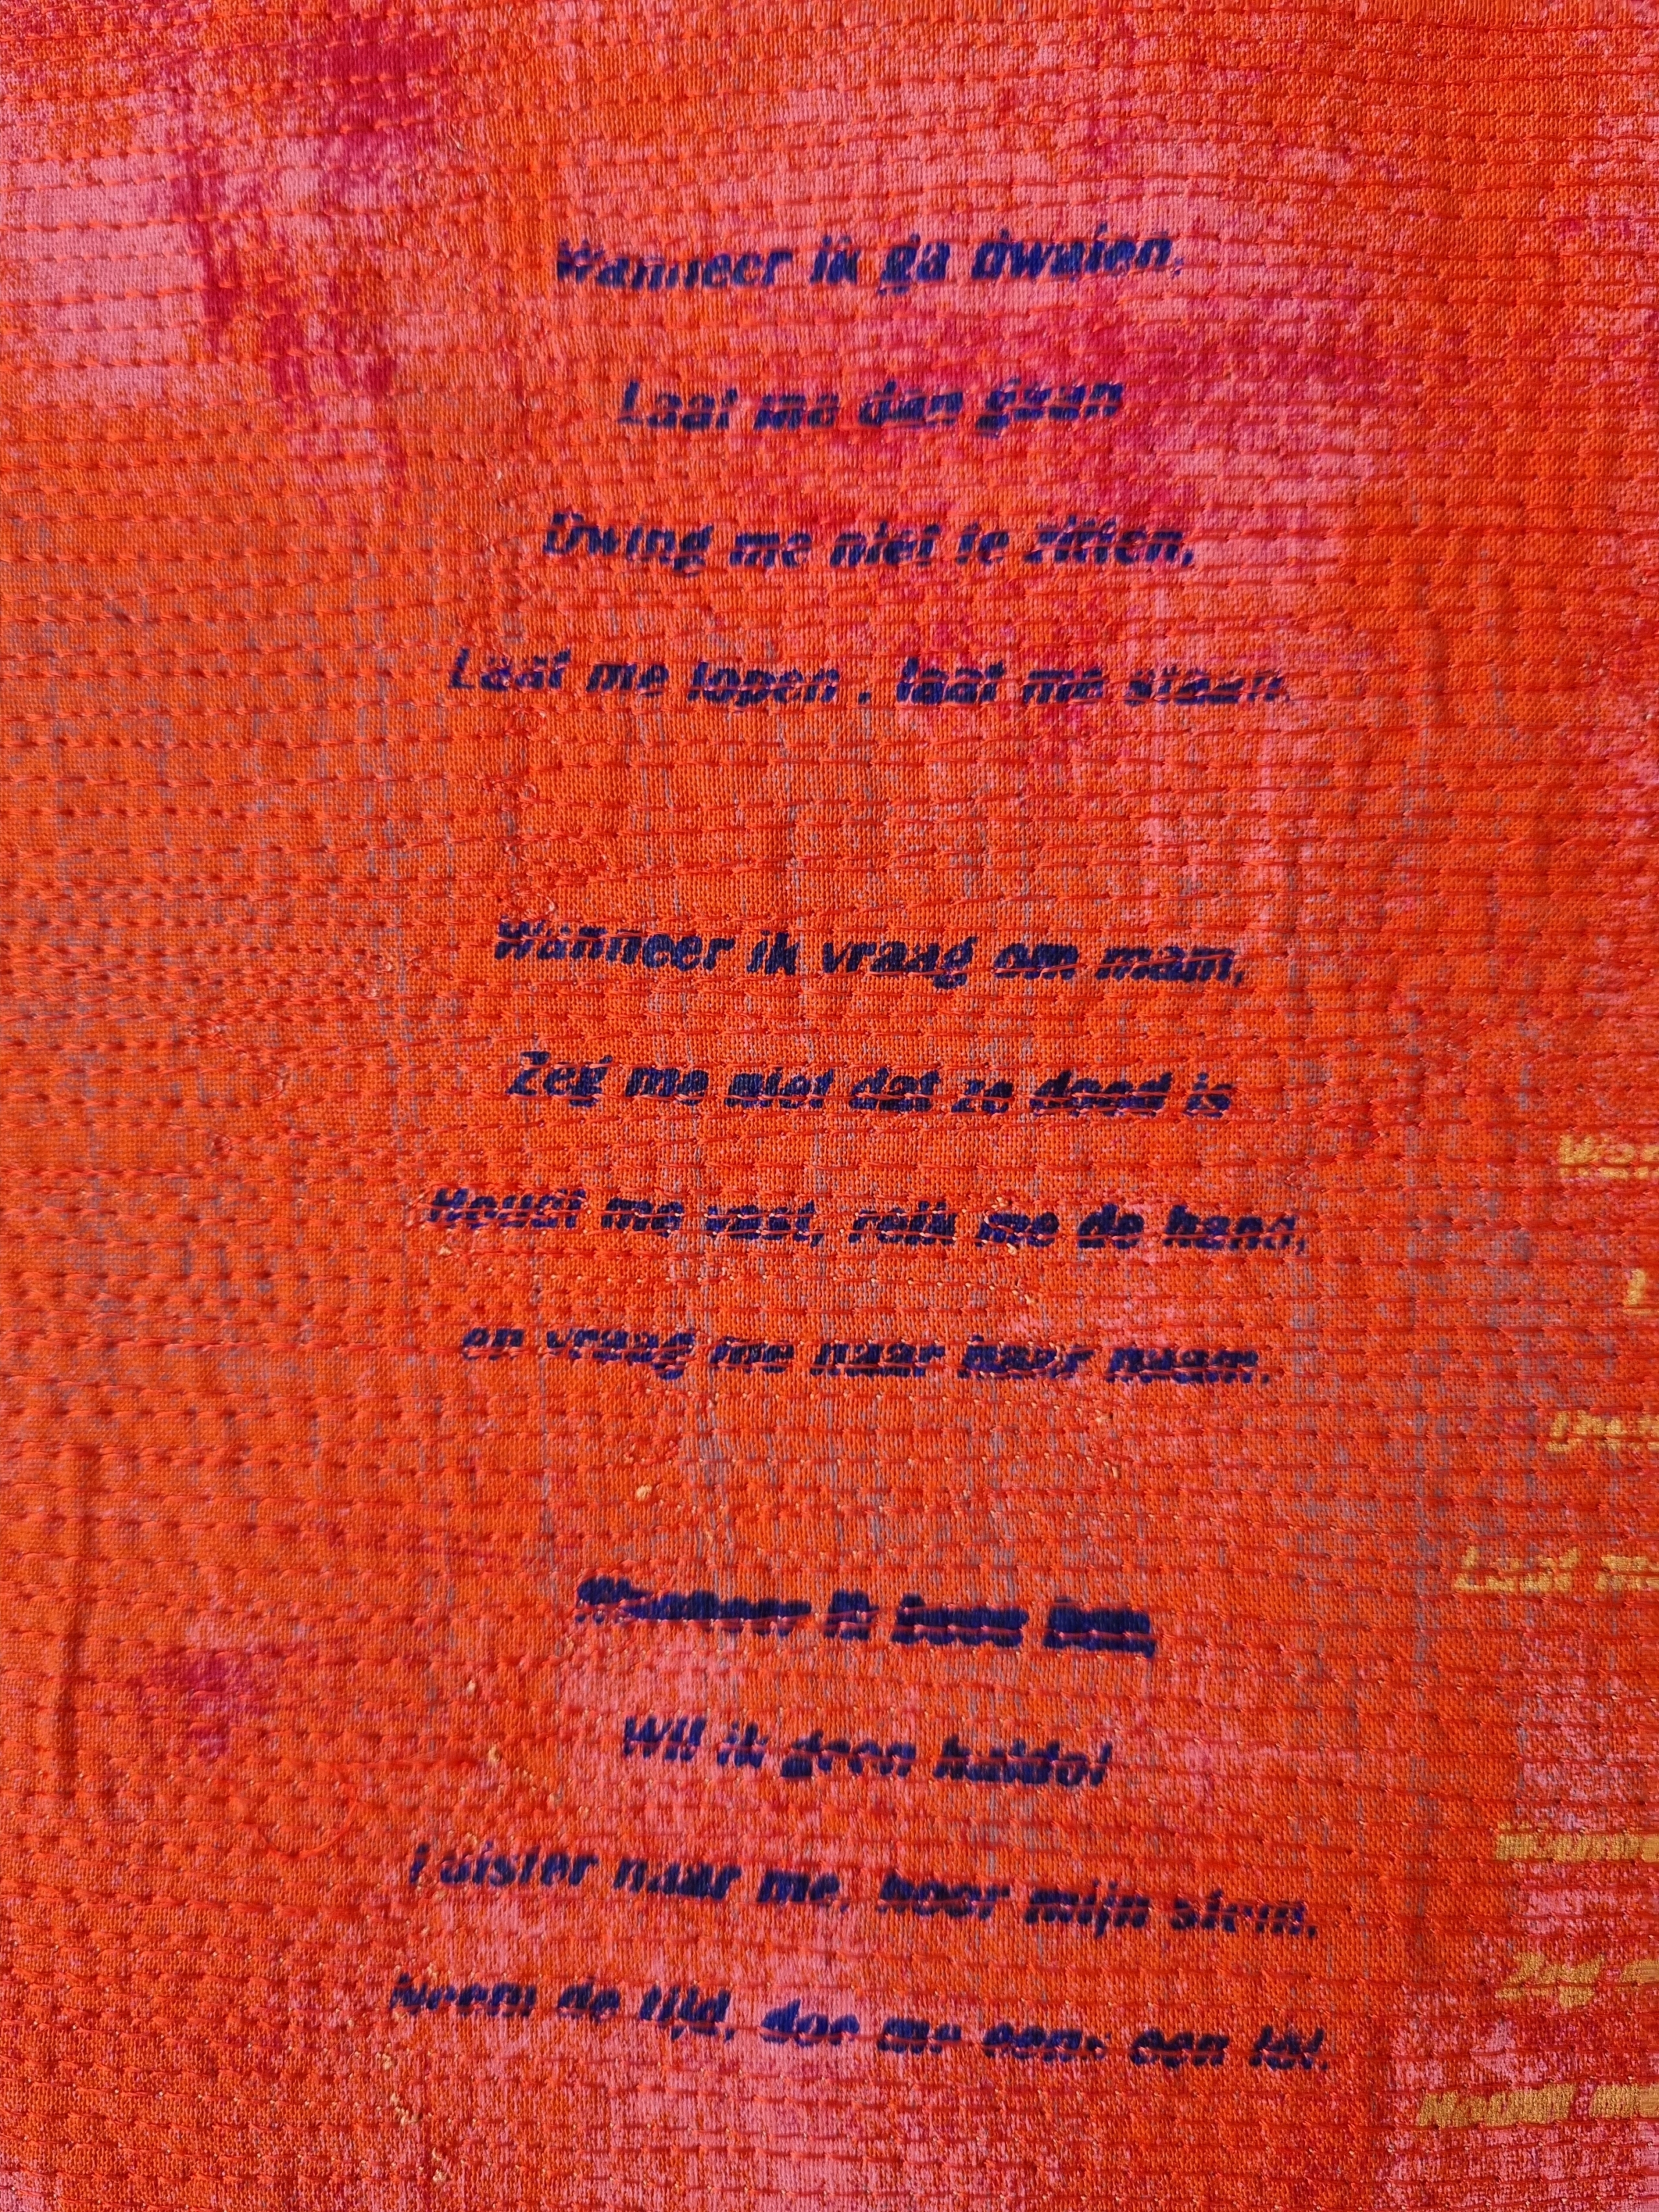 Wanneer ik ga dwalen,
Laat me dan gaan
Dwing me niet te zitten,
Laat me lopen , laat me staan.
Wanneer ik vraag om mam,
Zeg me niet dat ze dood is
Houdt me vast, reik me de hand,
en vraag me naar haar naam.
Wanneer ik boos ben,
Wil ik geen haldol
Luister naar me, hoor mijn stem,
Neem de tijd, doe me eens een lol.
Laat
Zeg
Houdt